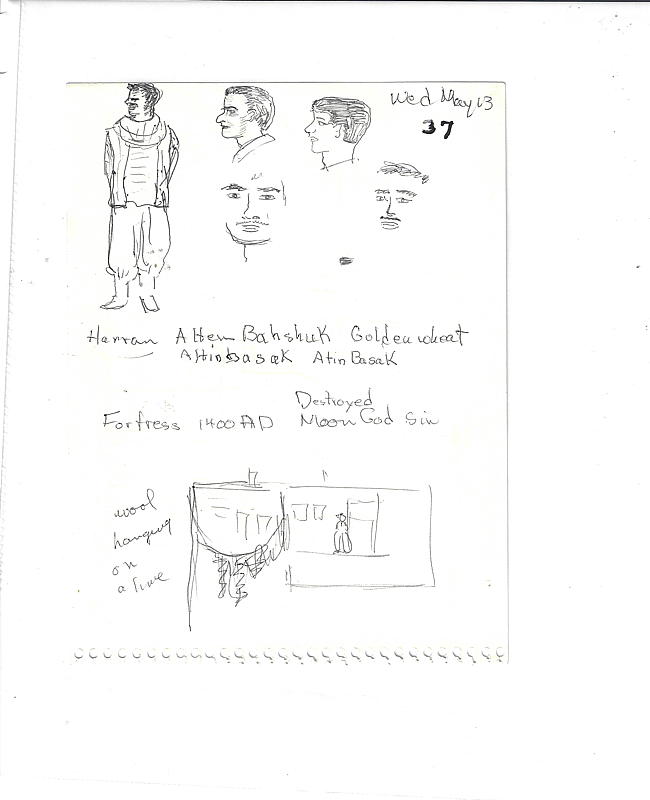 Wed May 13
37
Harran Altem Bahshuk Golden wheat
Altinbasak Atin Basak
Destroyed
Fortress 1400 AD Moon God Sin
wool
hanging
on
a line